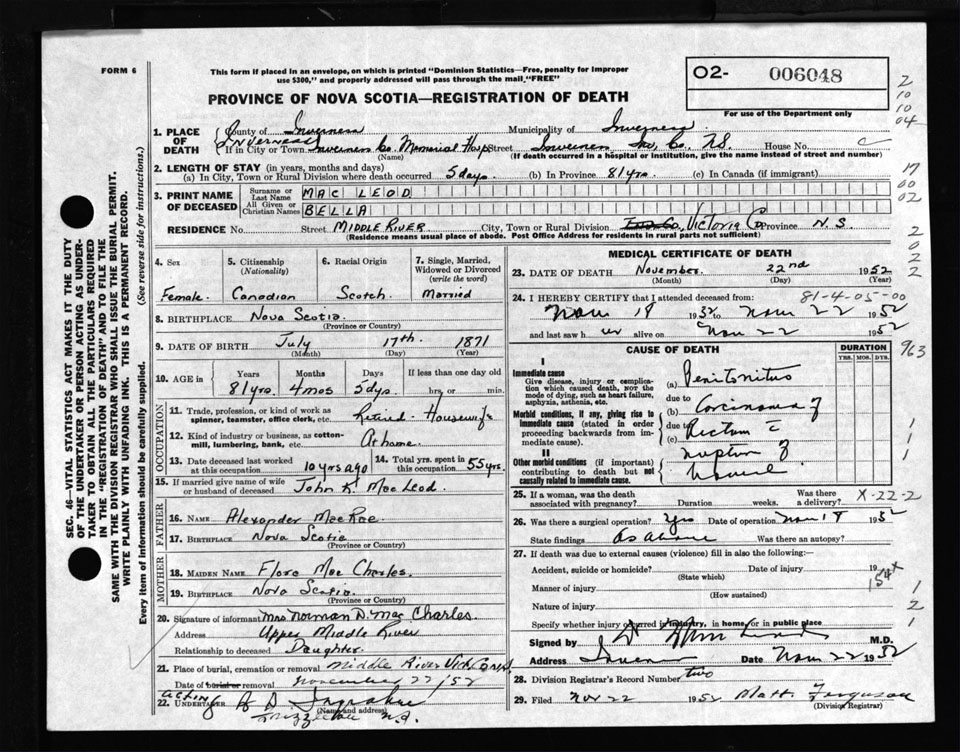 FORM 6
This form if placed in an envelope, on which is printed "Dominion Statistics—Free, penalty for improper
use $300," and properly addressed will pass through the mail "FREE"
O2- 006048
PROVINCE OF NOVA SCOTIA—REGISTRATION OF DEATH
For use of the Department only
2
10
10
04
1. PLACE OF DEATH
County of Inverness Municipality of Inverness
Inverness
If in City or Town Inverness Co. Memorial Hosp Street Inverness Co., N.S. House No. C
(Name) (If death occurred in a hospital or institution, give the name instead of street and number)
2. LENGTH OF STAY (in years, months and days)
(a) In City, Town or Rural Division where death occurred 5 days. (b) In Province 81 yrs. (c) In Canada (if immigrant)
17
00
02
3. PRINT NAME OF DECEASED
Surname or Last Name MAC LEOD
All Given or Christian Names BELLA
RESIDENCE No. Street MIDDLE RIVER City, Town or Rural Division Victoria Co Province N.S.
(Residence means usual place of abode. Post Office Address for residents in rural parts not sufficient)
2
0
2
2
4. Sex
Female.
5. Citizenship (Nationality)
Canadian
6. Racial Origin
Scotch
7. Single, Married, Widowed or Divorced (write the word)
Married
8. BIRTHPLACE Nova Scotia
(Province or Country)
9. DATE OF BIRTH July 17th. 1871
(Month) (Day) (Year)
10. AGE in Years Months Days If less than one day old
81 yrs. 4 mos 5 dys. hrs. or min.
OCCUPATION
11. Trade, profession, or kind of work as spinner, teamster, office clerk, etc. Retired - Housewife
12. Kind of industry or business, as cotton-mill, lumbering, bank, etc. At home.
13. Date deceased last worked at this occupation 10 yrs ago
14. Total yrs. spent in this occupation 55 yrs.
15. If married give name of wife or husband of deceased John K. Mac Leod
FATHER
16. NAME Alexander MacRae
17. BIRTHPLACE Nova Scotia
(Province or Country)
MOTHER
18. MAIDEN NAME Flora Mac Charles.
19. BIRTHPLACE Nova Scotia
(Province or Country)
20. Signature of informant Mrs Norman D. Mac Charles.
Address Upper Middle River
Relationship to deceased Daughter.
21. Place of burial, cremation or removal Middle River Vict
Date of burial or removal November 22/52
Acting
22. UNDERTAKER
(Name and address)
MEDICAL CERTIFICATE OF DEATH
23. DATE OF DEATH November. 22nd 1952
(Month) (Day)
24. I HEREBY CERTIFY that I attended deceased from: 81-4-05-00
Nov 18 1952 to Nov 22 1952
and last saw h er alive on Nov 22 1952
963
CAUSE OF DEATH
DURATION
YRS. MOS. DYS.
I
Immediate cause
Give disease, injury or complication which caused death, NOT the mode of dying, such as heart failure, asphyxia, asthenia, etc.
Morbid conditions, if any, giving rise to immediate cause (stated in order proceeding backwards from immediate cause).
II
Other morbid conditions (if important) contributing to death but not causally related to immediate cause.
(a) Peritonitis
due to
(b) Carcinoma of
due to
(c) Rectum c
rupture of
bowel
1
1
1
25. If a woman, was the death associated with pregnancy? Duration weeks. Was there a delivery?
X-22-2
26. Was there a surgical operation? Yes Date of operation Nov 18 1952
State findings As above Was there an autopsy?
27. If death was due to external causes (violence) fill in also the following:—
Accident, suicide or homicide? Date of injury 19
(State which)
154x
Manner of injury
(How sustained)
Nature of injury
Specify whether injury occurred in industry, in home, or in public place
1
2
1
Signed by M.D.
Address Inverness Date Nov 22 1952
28. Division Registrar's Record Number two
29. Filed Nov 22 1952 Matt. Ferguson
(Division Registrar)
SEC. 46—VITAL STATISTICS ACT MAKES IT THE DUTY
OF THE UNDERTAKER OR PERSON ACTING AS UNDERTAKER
TO OBTAIN ALL THE PARTICULARS REQUIRED
IN THE "REGISTRATION OF DEATH" AND TO FILE THE
SAME WITH THE DIVISION REGISTRAR WHO SHALL ISSUE THE BURIAL PERMIT.
WRITE PLAINLY WITH UNFADING INK. THIS IS A PERMANENT RECORD.
Every item of information should be carefully supplied. (See reverse side for instructions.)